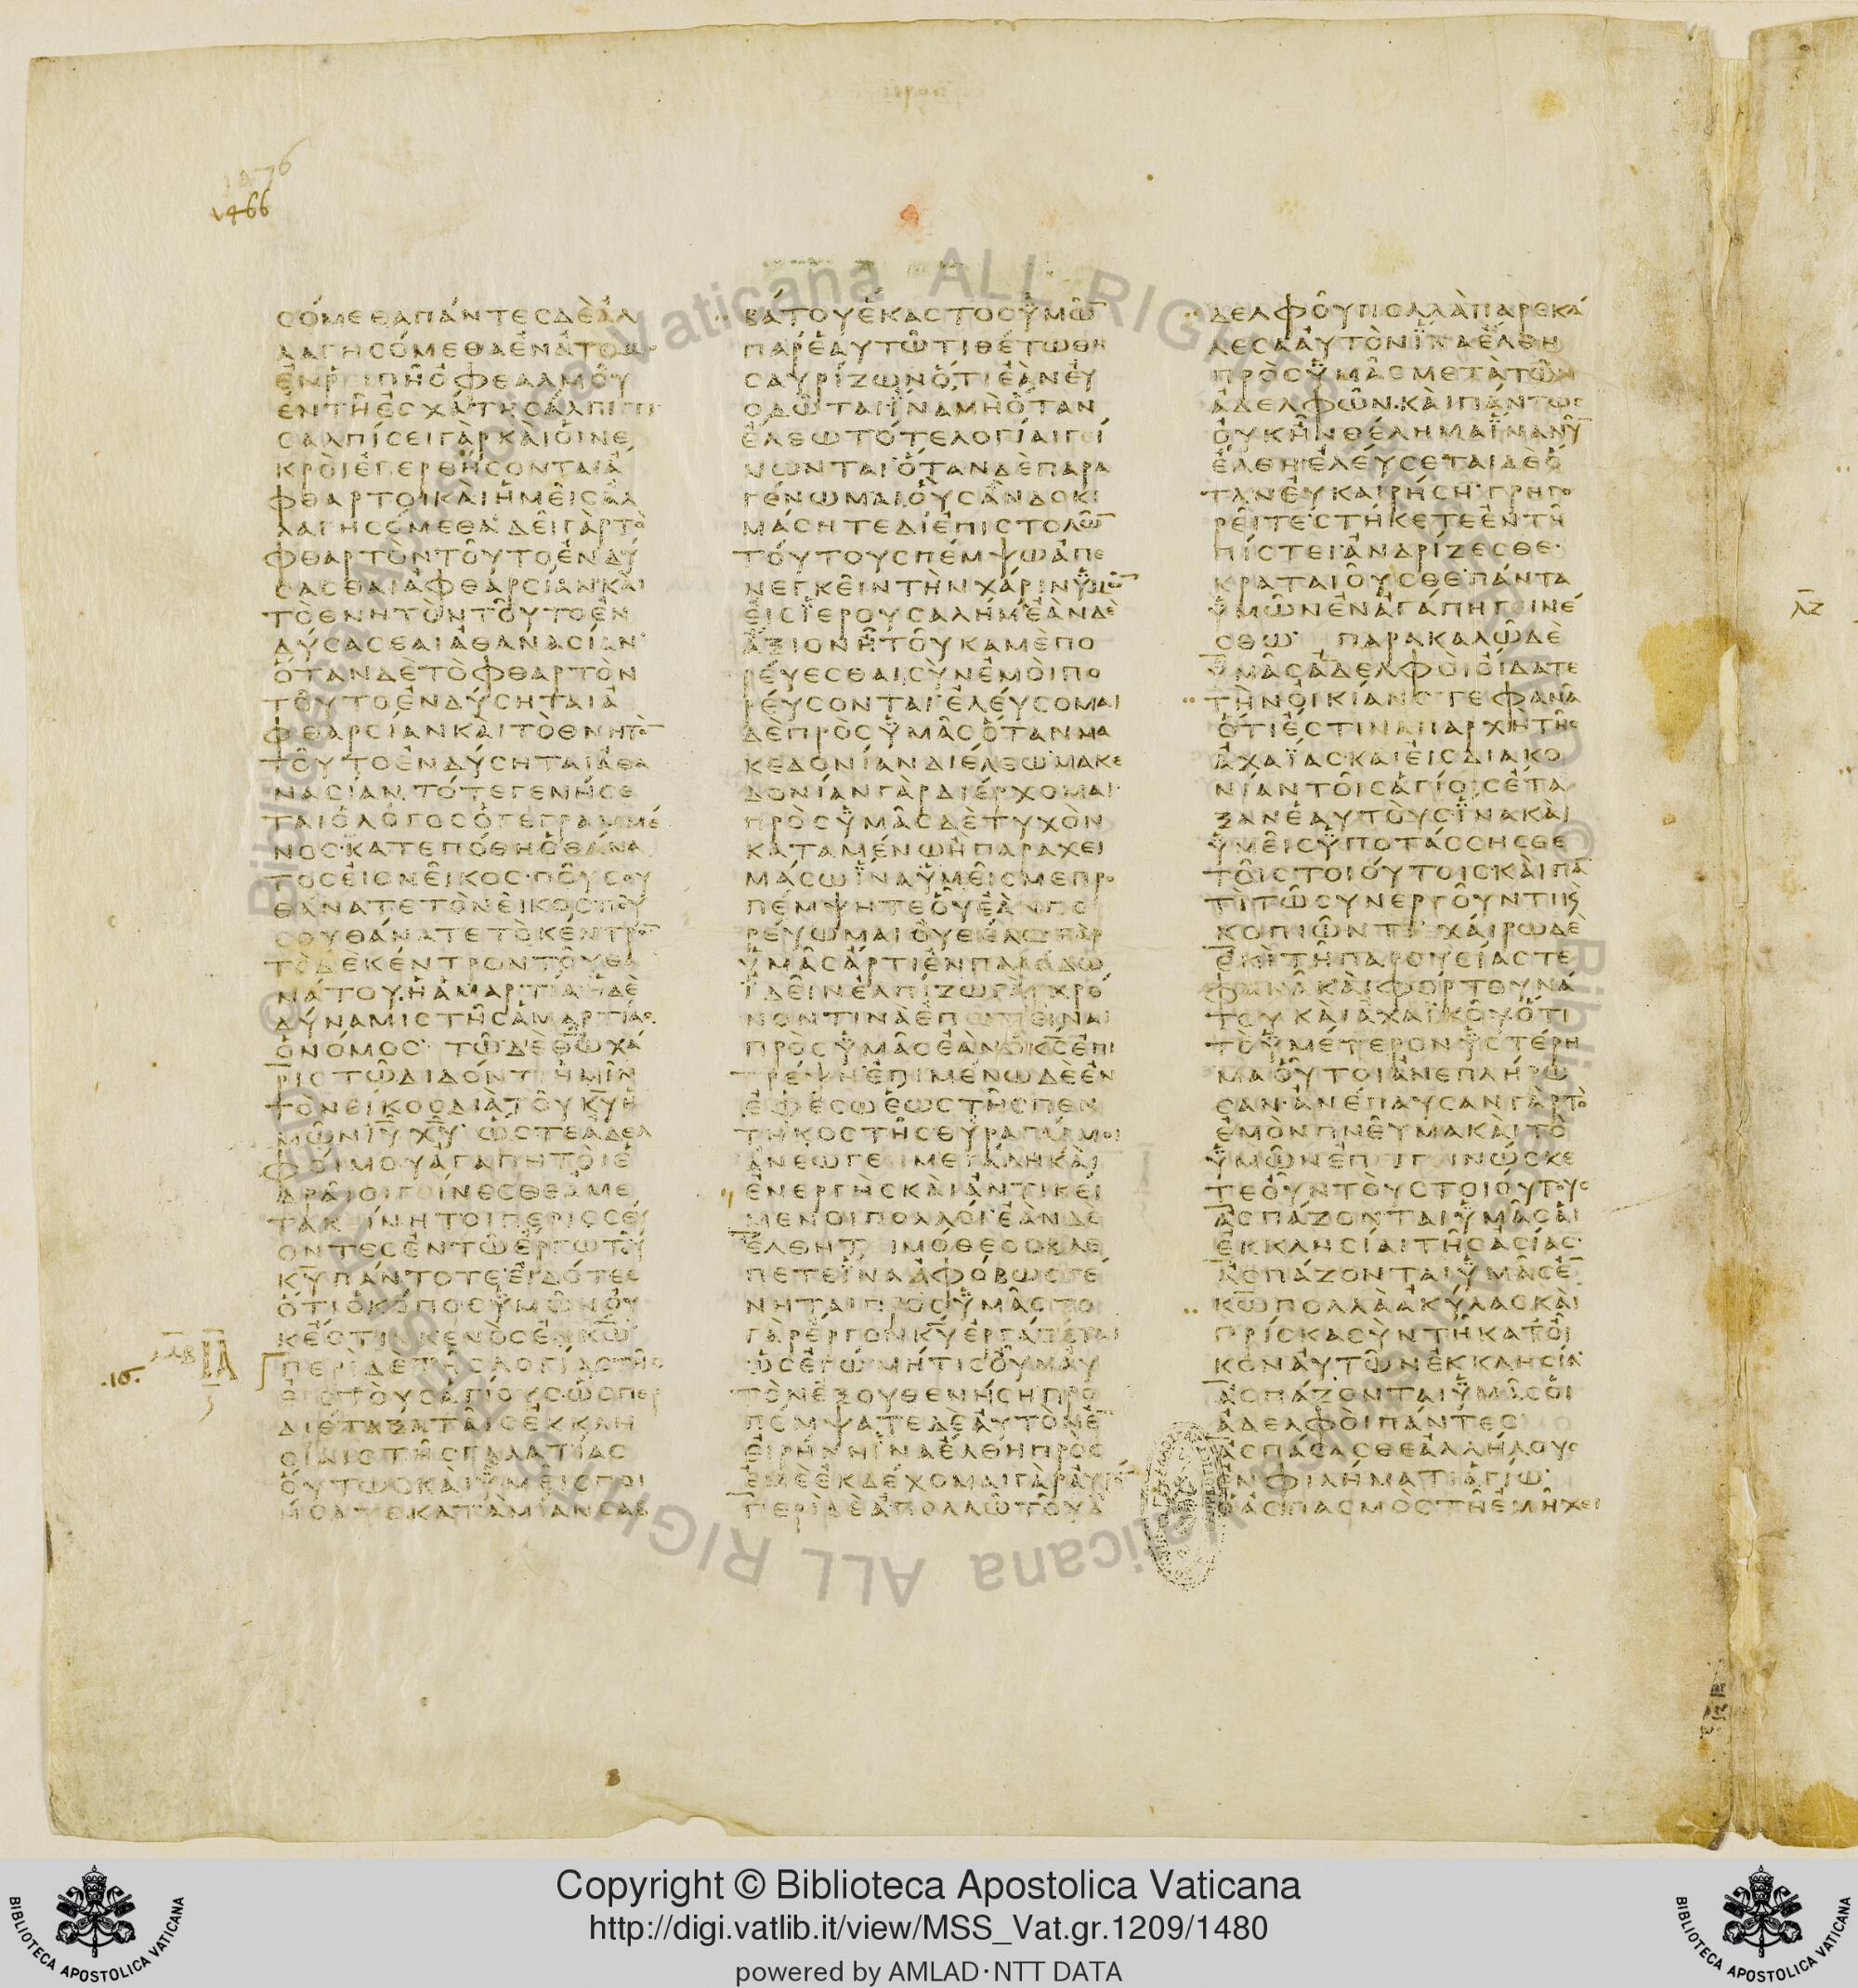 1476
1466
ϹΟΜΕΘΑΠΑΝΤΕϹΔΕΑΛ
ΛΑΓΗϹΟΜΕΘΑΕΝΑΤΟΜ
ΕΝΡΕΙΠΗΟΦΘΑΛΜΟΥ
ΕΝΤΗΕϹΧΑΤΗϹΑΛΠΙΓΓΙ
ϹΑΛΠΙϹΕΙΓΑΡΚΑΙΟΙΝΕ
ΚΡΟΙΕΓΕΡΘΗϹΟΝΤΑΙΑ
ΦΘΑΡΤΟΙΚΑΙΗΜΕΙϹΑΛ
ΛΑΓΗϹΟΜΕΘΑΔΕΙΓΑΡΤΟ
ΦΘΑΡΤΟΝΤΟΥΤΟΕΝΔΥ
ϹΑϹΘΑΙΑΦΘΑΡϹΙΑΝΚΑΙ
ΤΟΘΝΗΤΟΝΤΟΥΤΟΕΝ
ΔΥϹΑϹΘΑΙΑΘΑΝΑϹΙΑΝ
ΟΤΑΝΔΕΤΟΦΘΑΡΤΟΝ
ΤΟΥΤΟΕΝΔΥϹΗΤΑΙΑ
ΦΘΑΡϹΙΑΝΚΑΙΤΟΘΝΗΤΟ̅
ΤΟΥΤΟΕΝΔΥϹΗΤΑΙΑΘΑ
ΝΑϹΙΑΝΤΟΤΕΓΕΝΗϹΕ
ΤΑΙΟΛΟΓΟϹΟΓΕΓΡΑΜΜΕ
ΝΟϹΚΑΤΕΠΟΘΗΟΘΑΝΑ
ΤΟϹΕΙϹΝΕΙΚΟϹΠΟΥϹΟΥ
ΘΑΝΑΤΕΤΟΝΕΙΚΟϹΠΟΥ
ϹΟΥΘΑΝΑΤΕΤΟΚΕΝΤΡΟ̅
ΤΟΔΕΚΕΝΤΡΟΝΤΟΥΘΑ
ΝΑΤΟΥΗΑΜΑΡΤΙΑΗΔΕ
ΔΥΝΑΜΙϹΤΗϹΑΜΑΡΤΙΑϹ
ΟΝΟΜΟϹ ΤΩΔΕΘ̅Ω̅ΧΑ
ΡΙϹΤΩΔΙΔΟΝΤΙΗΜΙΝ
ΤΟΝΕΙΚΟϹΔΙΑΤΟΥΚ̅Υ̅Η
ΜΩΝΙ̅Υ̅Χ̅Υ̅ΩϹΤΕΑΔΕΛ
ΦΟΙΜΟΥΑΓΑΠΗΤΟΙΕ
ΔΡΑΙΟΙΓΕΙΝΕϹΘΕΑΜΕ
ΤΑΚΕΙΝΗΤΟΙΠΕΡΙϹϹΕΥ
ΟΝΤΕϹΕΝΤΩΕΡΓΩΤΟΥ
Κ̅Υ̅ΠΑΝΤΟΤΕΕΙΔΟΤΕϹ
ΟΤΙΟΚΟΠΟϹΥΜΩΝΟΥ
ΚΕϹΤΙΝΚΕΝΟϹΕΝΚ̅Ω̅
ΠΕΡΙΔΕΤΗϹΛΟΓΙΑϹΤΗϹ
ΕΙϹΤΟΥϹΑΓΙΟΥϹΩϹΠΕΡ
ΔΙΕΤΑΞΑΤΑΙϹΕΚΚΛΗ
ϹΙΑΙϹΤΗϹΓΑΛΑΤΙΑϹ
ΟΥΤΩϹΚΑΙΥΜΕΙϹΠΟΙ
ΗϹΑΤΕΚΑΤΑΜΙΑΝϹΑΒ
ΒΑΤΟΥΕΚΑϹΤΟϹΥΜΩ̅
ΠΑΡΕΑΥΤΩΤΙΘΕΤΩΘΗ
ϹΑΥΡΙΖΩΝΟΤΙΕΑΝΕΥ
ΟΔΩΤΑΙΙΝΑΜΗΟΤΑΝ
ΕΛΘΩΤΟΤΕΛΟΓΙΑΙΓΕΙ
ΝΩΝΤΑΙΟΤΑΝΔΕΠΑΡΑ
ΓΕΝΩΜΑΙΟΥϹΑΝΔΟΚΙ
ΜΑϹΗΤΕΔΙΕΠΙϹΤΟΛΩ̅
ΤΟΥΤΟΥϹΠΕΜΨΩΑΠΕ
ΝΕΓΚΕΙΝΤΗΝΧΑΡΙΝΥΜΩ̅
ΕΙϹΙΕΡΟΥϹΑΛΗΜΕΑΝΔΕ
ΑΞΙΟΝΗΤΟΥΚΑΜΕΠΟ
ΡΕΥΕϹΘΑΙϹΥΝΕΜΟΙΠΟ
ΡΕΥϹΟΝΤΑΙΕΛΕΥϹΟΜΑΙ
ΔΕΠΡΟϹΥΜΑϹΟΤΑΝΜΑ
ΚΕΔΟΝΙΑΝΔΙΕΛΘΩΜΑΚΕ
ΔΟΝΙΑΝΓΑΡΔΙΕΡΧΟΜΑΙ
ΠΡΟϹΥΜΑϹΔΕΤΥΧΟΝ
ΚΑΤΑΜΕΝΩΗΠΑΡΑΧΕΙ
ΜΑϹΩΙΝΑΥΜΕΙϹΜΕΠΡΟ
ΠΕΜΨΗΤΕΟΥΕΑΝΠΟ
ΡΕΥΩΜΑΙΟΥΘΕΛΩΓΑΡ
ΥΜΑϹΑΡΤΙΕΝΠΑΡΟΔΩ
ΙΔΕΙΝΕΛΠΙΖΩΓΑΡΧΡΟ
ΝΟΝΤΙΝΑΕΠΙΜΕΙΝΑΙ
ΠΡΟϹΥΜΑϹΕΑΝΟΚ̅Ϲ̅ΕΠΙ
ΤΡΕΨΗΕΠΙΜΕΝΩΔΕΕΝ
ΕΦΕϹΩΕΩϹΤΗϹΠΕΝ
ΤΗΚΟϹΤΗϹΘΥΡΑΓΑΡΜΟΙ
ΑΝΕΩΓΕΝΜΕΓΑΛΗΚΑΙ
ΕΝΕΡΓΗϹΚΑΙΑΝΤΙΚΕΙ
ΜΕΝΟΙΠΟΛΛΟΙΕΑΝΔΕ
ΕΛΘΗΤΙΜΟΘΕΟϹΒΛΕ
ΠΕΤΕΙΝΑΑΦΟΒΩϹΓΕ
ΝΗΤΑΙΠΡΟϹΥΜΑϹΤΟ
ΓΑΡΕΡΓΟΝΚ̅Υ̅ΕΡΓΑΖΕΤΑΙ
ΩϹΕΓΩΜΗΤΙϹΟΥΜΑΥ
ΤΟΝΕΞΟΥΘΕΝΗϹΗΠΡΟ
ΠΕΜΨΑΤΕΔΕΑΥΤΟΝΕ̅
ΕΙΡΗΝΗΙΝΑΕΛΘΗΠΡΟϹ
ΕΜΕΕΚΔΕΧΟΜΑΙΓΑΡΑΥΤΟ̅
ΠΕΡΙΔΕΑΠΟΛΛΩΤΟΥΑ
ΔΕΛΦΟΥΠΟΛΛΑΠΑΡΕΚΑ
ΛΕϹΑΑΥΤΟΝΙΝΑΕΛΘΗ
ΠΡΟϹΥΜΑϹΜΕΤΑΤΩΝ
ΑΔΕΛΦΩΝΚΑΙΠΑΝΤΩϹ
ΟΥΚΗΝΘΕΛΗΜΑΙΝΑΝΥ̅
ΕΛΘΗΕΛΕΥϹΕΤΑΙΔΕΟ
ΤΑΝΕΥΚΑΙΡΗϹΗΓΡΗΓΟ
ΡΕΙΤΕϹΤΗΚΕΤΕΕΝΤΗ
ΠΙϹΤΕΙΑΝΔΡΙΖΕϹΘΕ
ΚΡΑΤΑΙΟΥϹΘΕΠΑΝΤΑ
ΥΜΩΝΕΝΑΓΑΠΗΓΕΙΝΕ
ϹΘΩ ΠΑΡΑΚΑΛΩΔΕ
ΥΜΑϹΑΔΕΛΦΟΙΟΙΔΑΤΕ
ΤΗΝΟΙΚΙΑΝϹΤΕΦΑΝΑ
ΟΤΙΕϹΤΙΝΑΠΑΡΧΗΤΗϹ
ΑΧΑΙΑϹΚΑΙΕΙϹΔΙΑΚΟ
ΝΙΑΝΤΟΙϹΑΓΙΟΙϹΕΤΑ
ΞΑΝΕΑΥΤΟΥϹΙΝΑΚΑΙ
ΥΜΕΙϹΥΠΟΤΑϹϹΗϹΘΕ
ΤΟΙϹΤΟΙΟΥΤΟΙϹΚΑΙΠΑ̅
ΤΙΤΩϹΥΝΕΡΓΟΥΝΤΙΚ
ΚΟΠΙΩΝΤΙ ΧΑΙΡΩΔΕ
ΕΠΙΤΗΠΑΡΟΥϹΙΑϹΤΕ
ΦΑΝΑΚΑΙΦΟΡΤΟΥΝΑ
ΤΟΥΚΑΙΑΧΑΙΚΟΥΟΤΙ
ΤΟΥΜΕΤΕΡΟΝΥϹΤΕΡΗ
ΜΑΟΥΤΟΙΑΝΕΠΛΗΡΩ
ϹΑΝΑΝΕΠΑΥϹΑΝΓΑΡΤΟ
ΕΜΟΝΠΝΕΥΜΑΚΑΙΤΟ
ΥΜΩΝΕΠΙΓΕΙΝΩϹΚΕ
ΤΕΟΥΝΤΟΥϹΤΟΙΟΥΤΟΥϹ
ΑϹΠΑΖΟΝΤΑΙΥΜΑϹΑΙ
ΕΚΚΛΗϹΙΑΙΤΗϹΑϹΙΑϹ
ΑϹΠΑΖΟΝΤΑΙΥΜΑϹΕ̅
Κ̅Ω̅ΠΟΛΛΑΑΚΥΛΑϹΚΑΙ
ΠΡΙϹΚΑϹΥΝΤΗΚΑΤΟΙ
ΚΟΝΑΥΤΩΝΕΚΚΛΗϹΙΑ
ΑϹΠΑΖΟΝΤΑΙΥΜΑϹΟΙ
ΑΔΕΛΦΟΙΠΑΝΤΕϹ
ΑϹΠΑϹΑϹΘΕΑΛΛΗΛΟΥϹ
ΕΝΦΙΛΗΜΑΤΙΑΓΙΩ
ΟΑϹΠΑϹΜΟϹΤΗΕΜΗΧΕΙ
Copyright © Biblioteca Apostolica Vaticana
http://digi.vatlib.it/view/MSS_Vat.gr.1209/1480
powered by AMLAD·NTT DATA
BIBLIOTECA APOSTOLICA VATICANA
BIBLIOTECA APOSTOLICA VATICANA